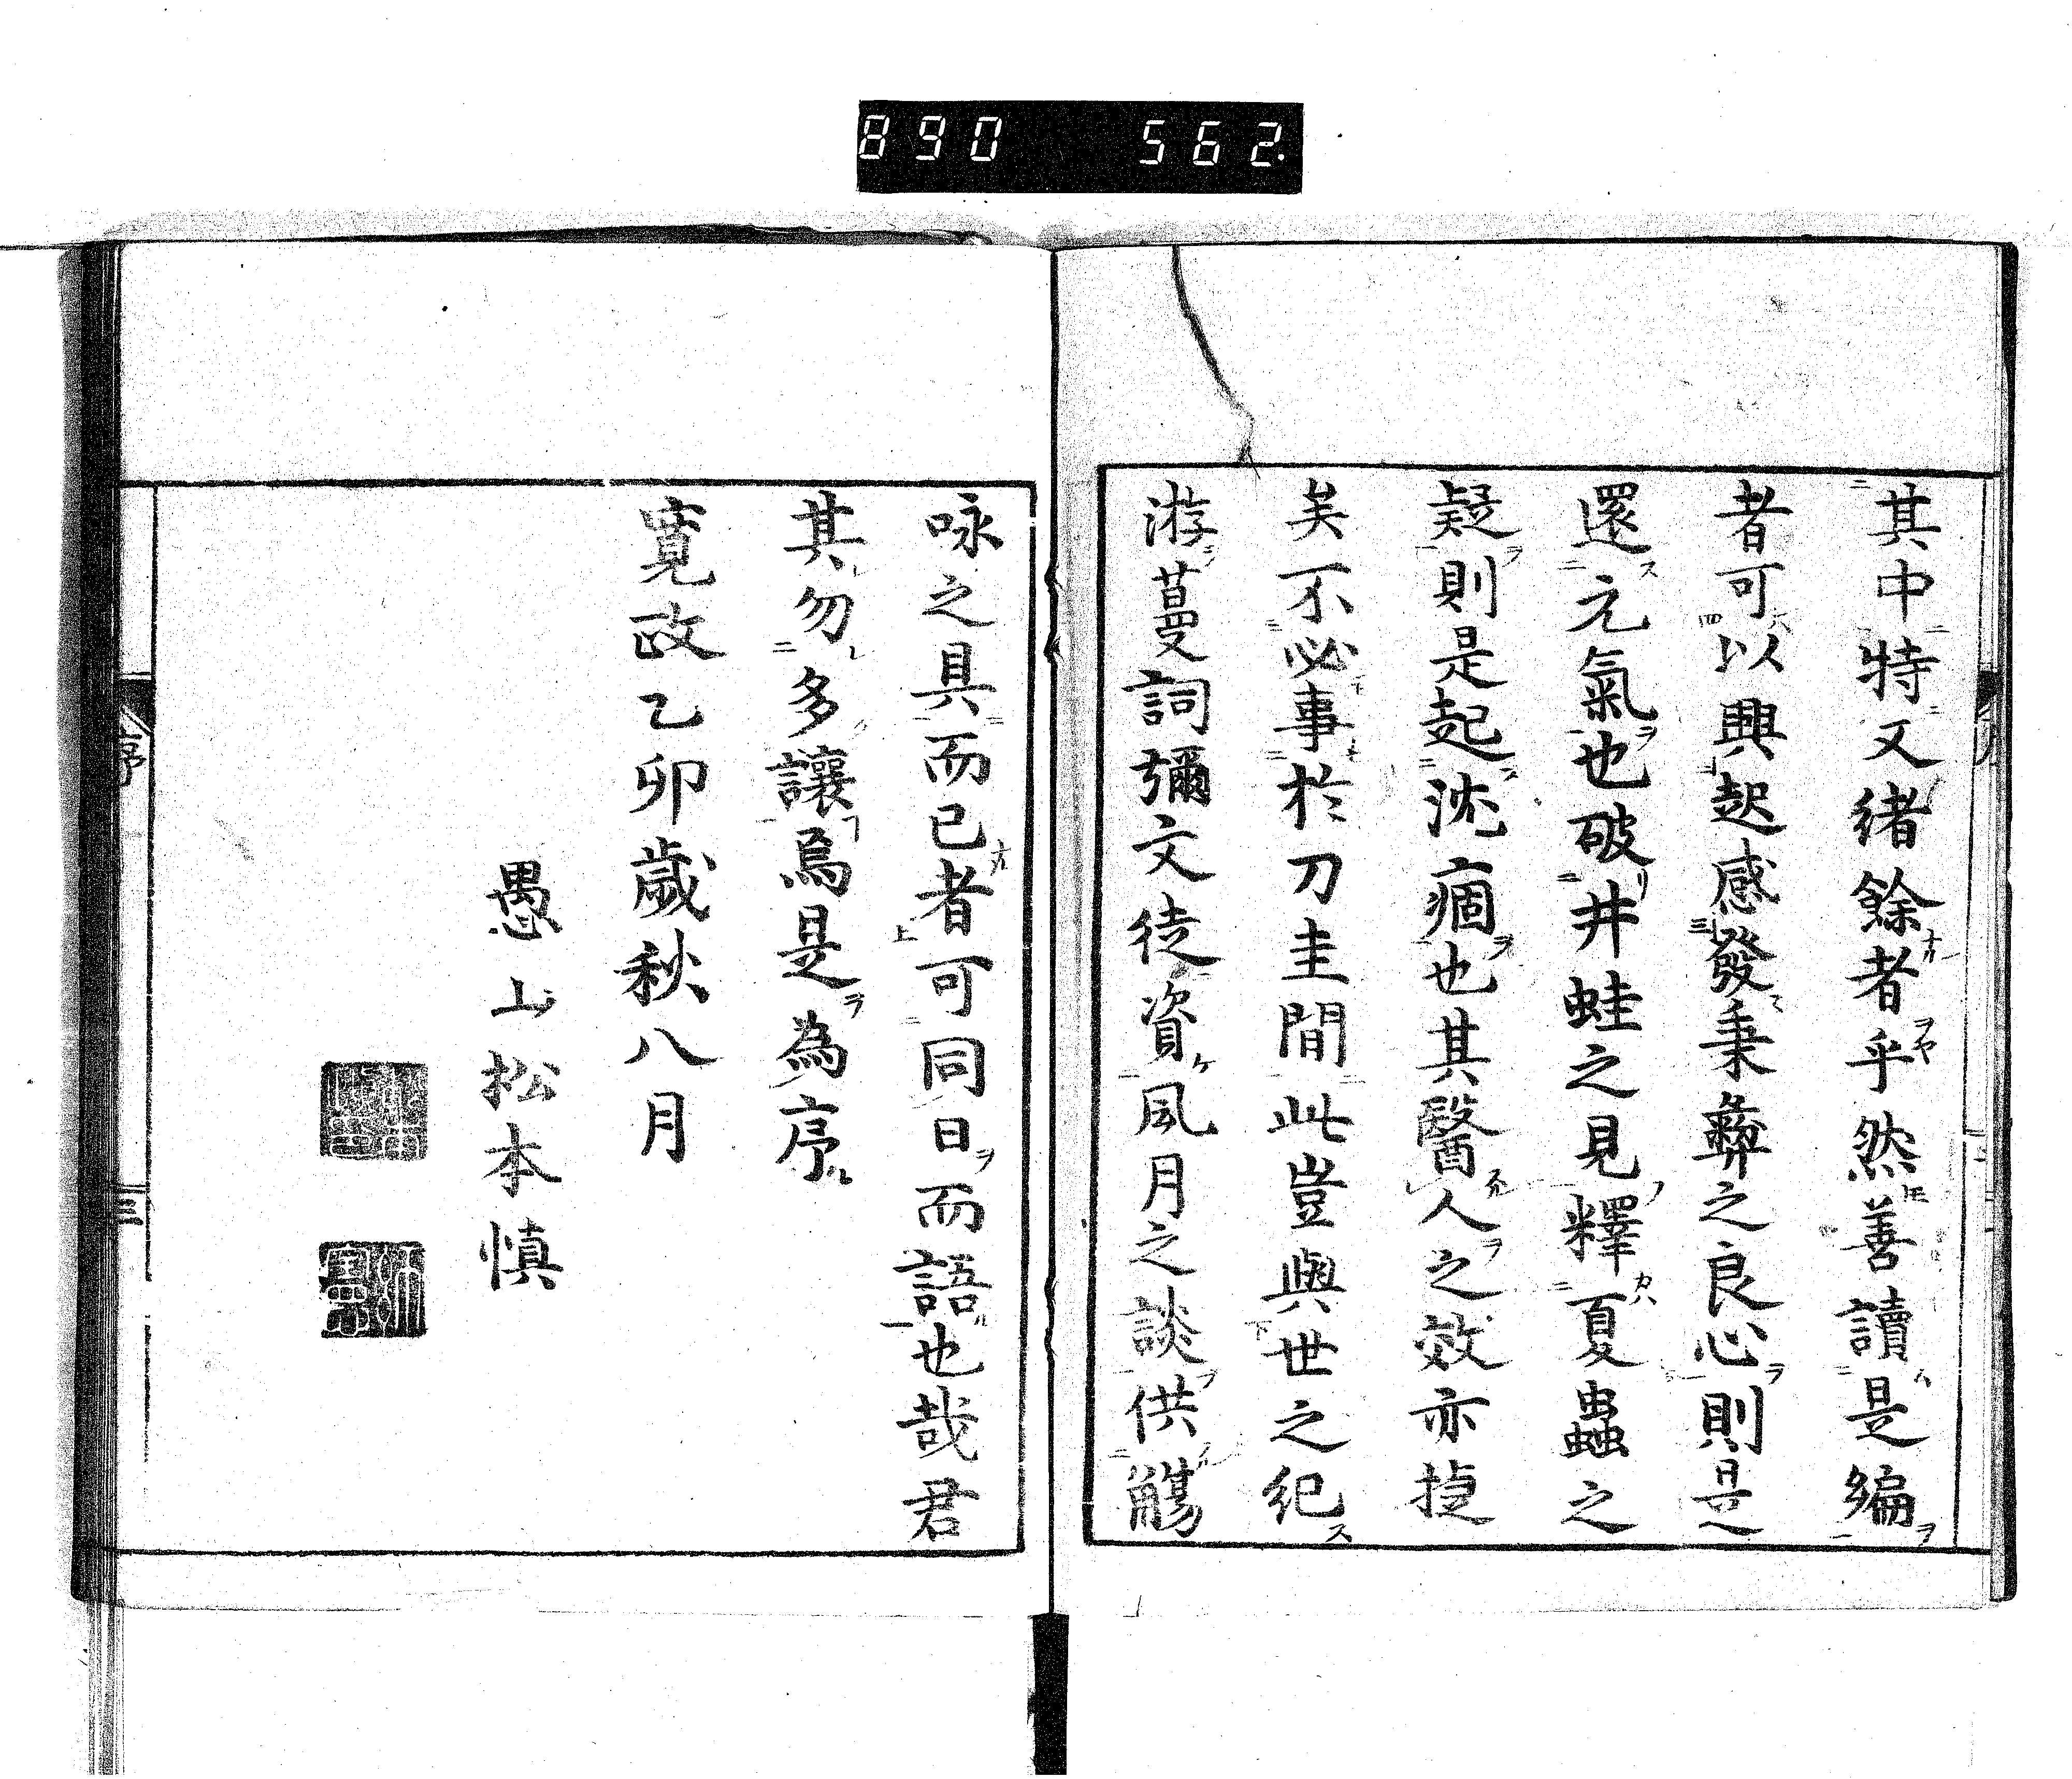 890 562
其中特又緒餘者乎然善讀是編
者可以興起感發秉彝之良心則是
還元氣也破井蛙之見釋夏蟲之
疑則是起沈痼也其醫人之效亦捷
矣不必事於刀圭間此豈與世之紀
游蔓詞彌文徒資風月之談供觴
咏之具而已者可同日而語也哉君
其勿多讓焉是為序
寛政乙卯歳秋八月
愚山松本慎
序
三